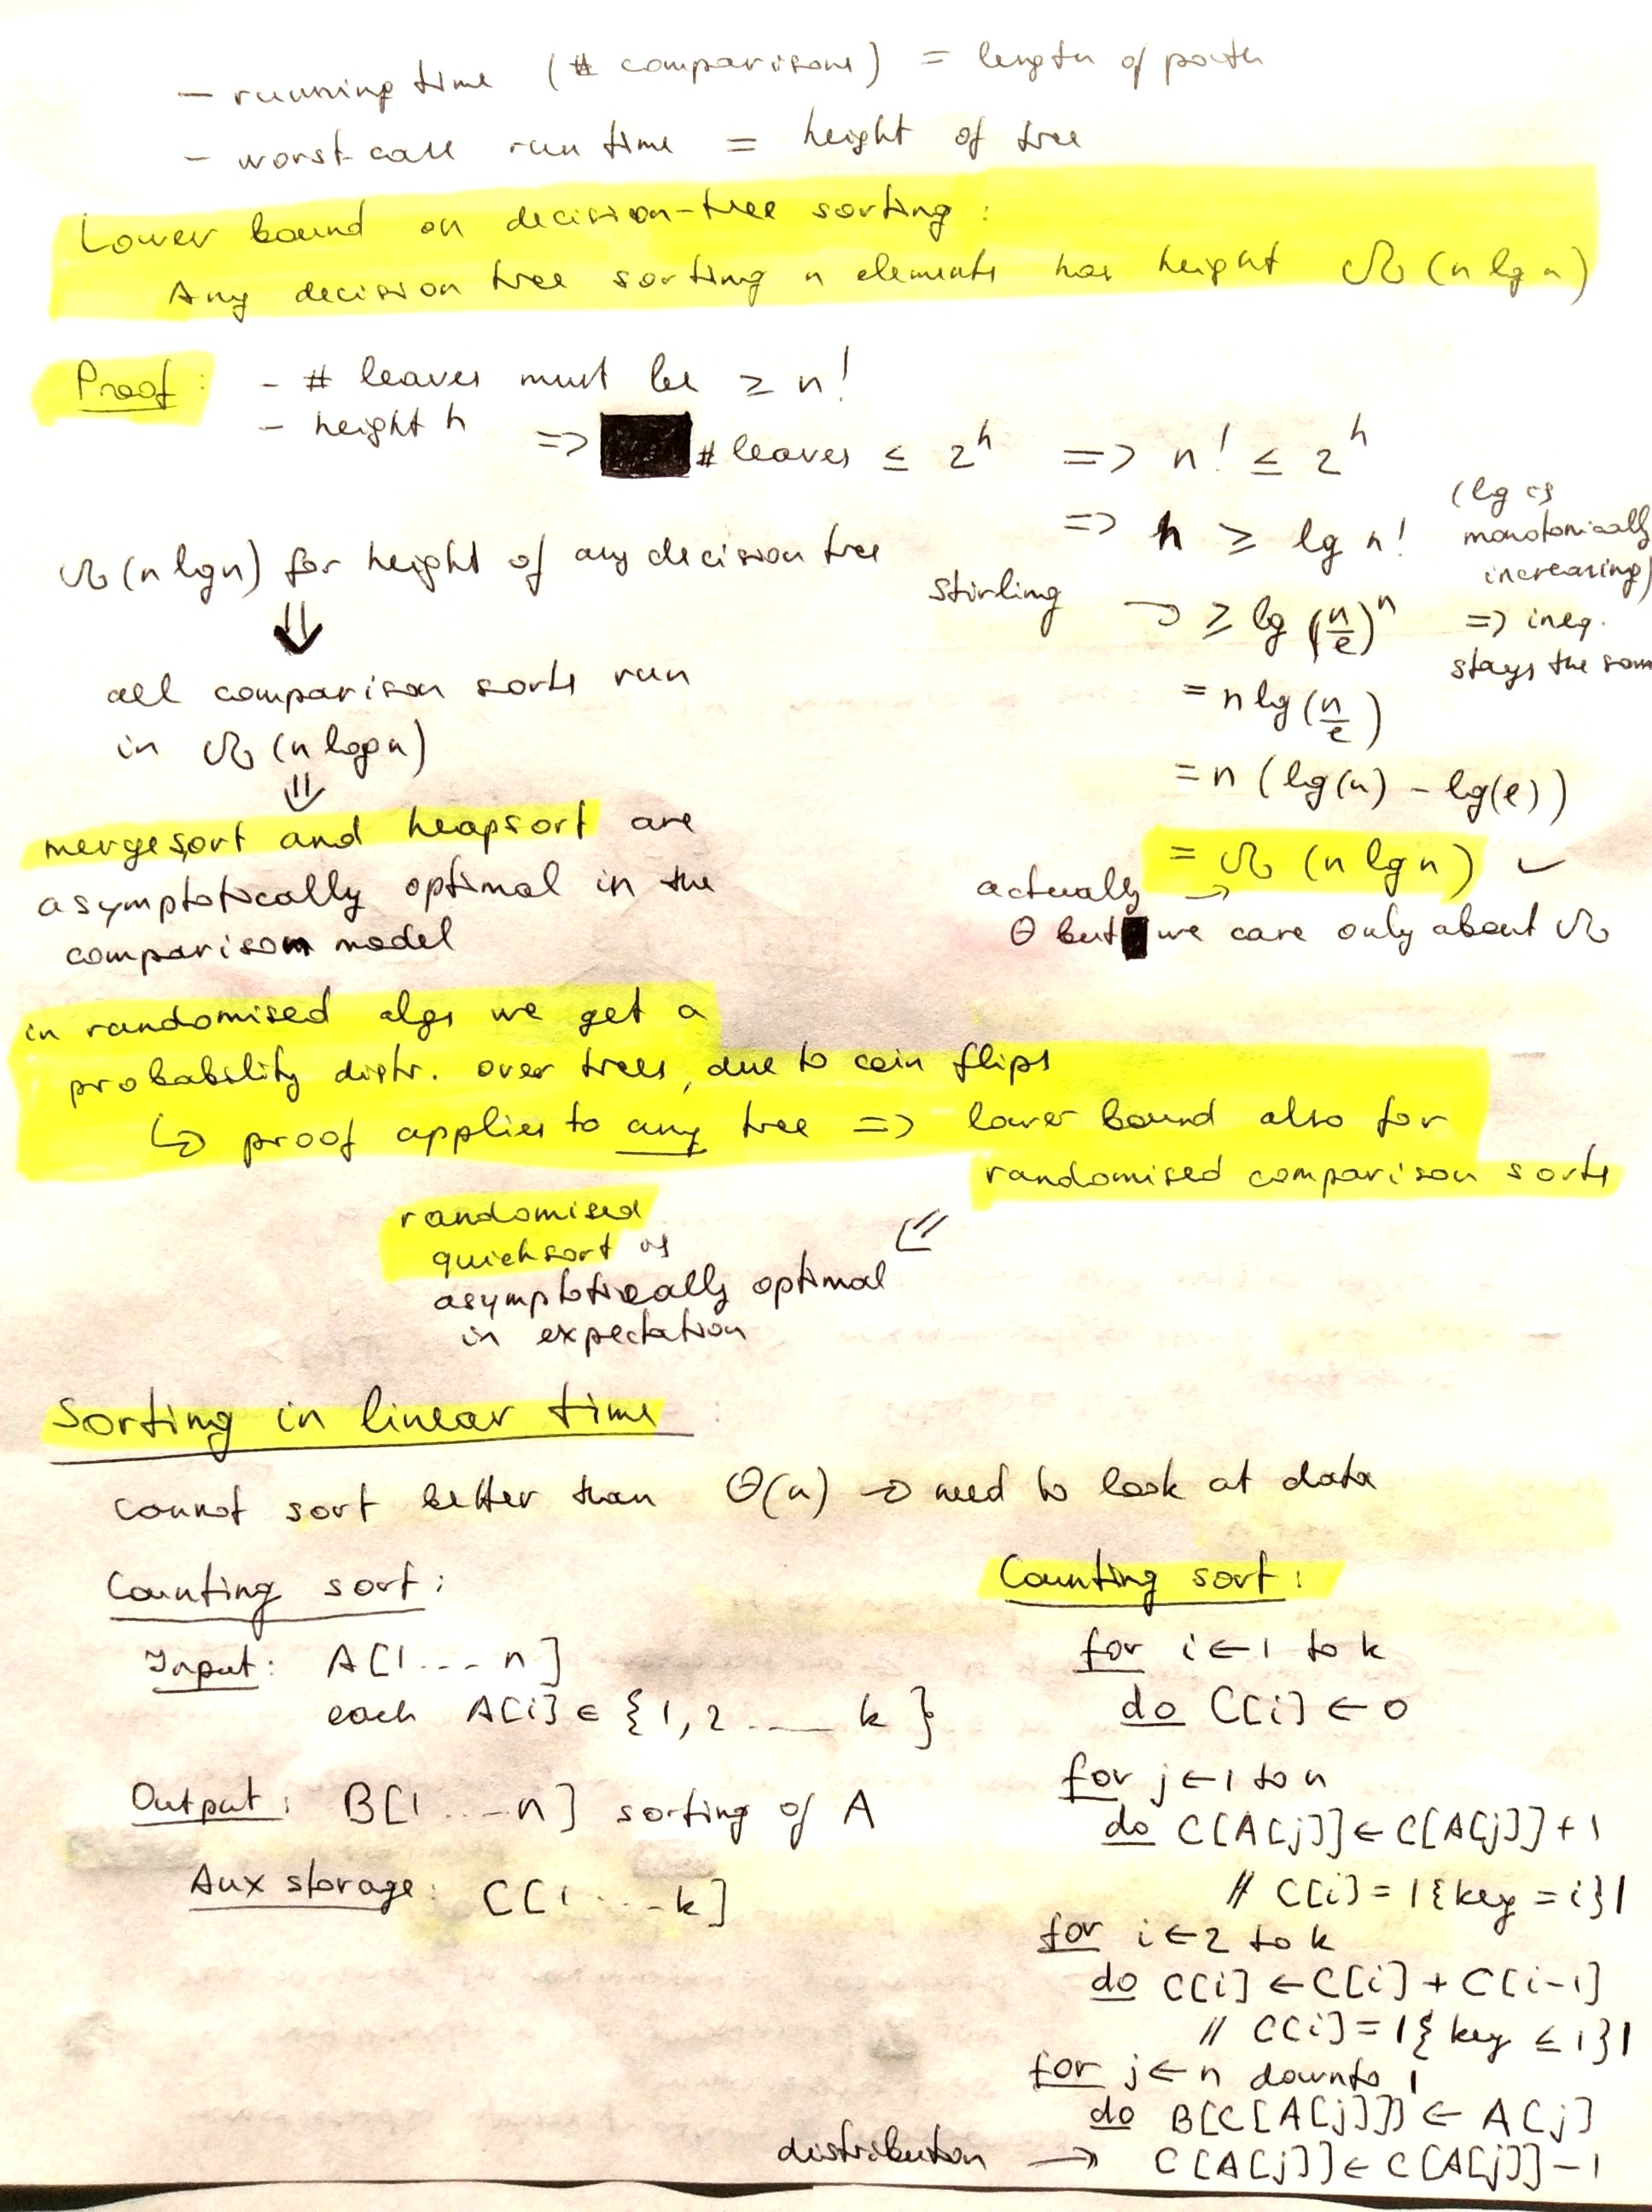 - running time (# comparisons) = length of path
- worst-case run time = height of tree
Lower bound on decision-tree sorting:
Any decision tree sorting n elements has height Ω(n lg n)
Proof: - # leaves must be ≥ n!
- height h => # leaves ≤ 2^h => n! ≤ 2^h
=> h ≥ lg n!
(lg is
monotonically
increasing)
=> ineq.
stays the same
stirling → ≥ lg (n/e)^n
= n lg (n/e)
= n (lg(n) - lg(e))
= Ω (n lg n) ✓
actually →
Θ but we care only about Ω
Ω(n lg n) for height of any decision tree
⇓
all comparison sorts run
in Ω (n log n)
⇓
mergesort and heapsort are
asymptotically optimal in the
comparison model
in randomised algs we get a
probability distr. over trees, due to coin flips
↳ proof applies to any tree => lower bound also for
randomised comparison sorts
⇙
randomised
quicksort is
asymptotically optimal
in expectation
Sorting in linear time
cannot sort better than Θ(n) → need to look at data
Counting sort:
Input: A[1...n]
each A[i] ∈ {1,2...k}
Output: B[1...n] sorting of A
Aux storage: C[1...k]
Counting sort:
for i ← 1 to k
do C[i] ← 0
for j ← 1 to n
do C[A[j]] ← C[A[j]] + 1
// C[i] = |{key = i}|
for i ← 2 to k
do C[i] ← C[i] + C[i-1]
// C[i] = |{key ≤ i}|
for j ← n downto 1
do B[C[A[j]]] ← A[j]
distribution → C[A[j]] ← C[A[j]] - 1